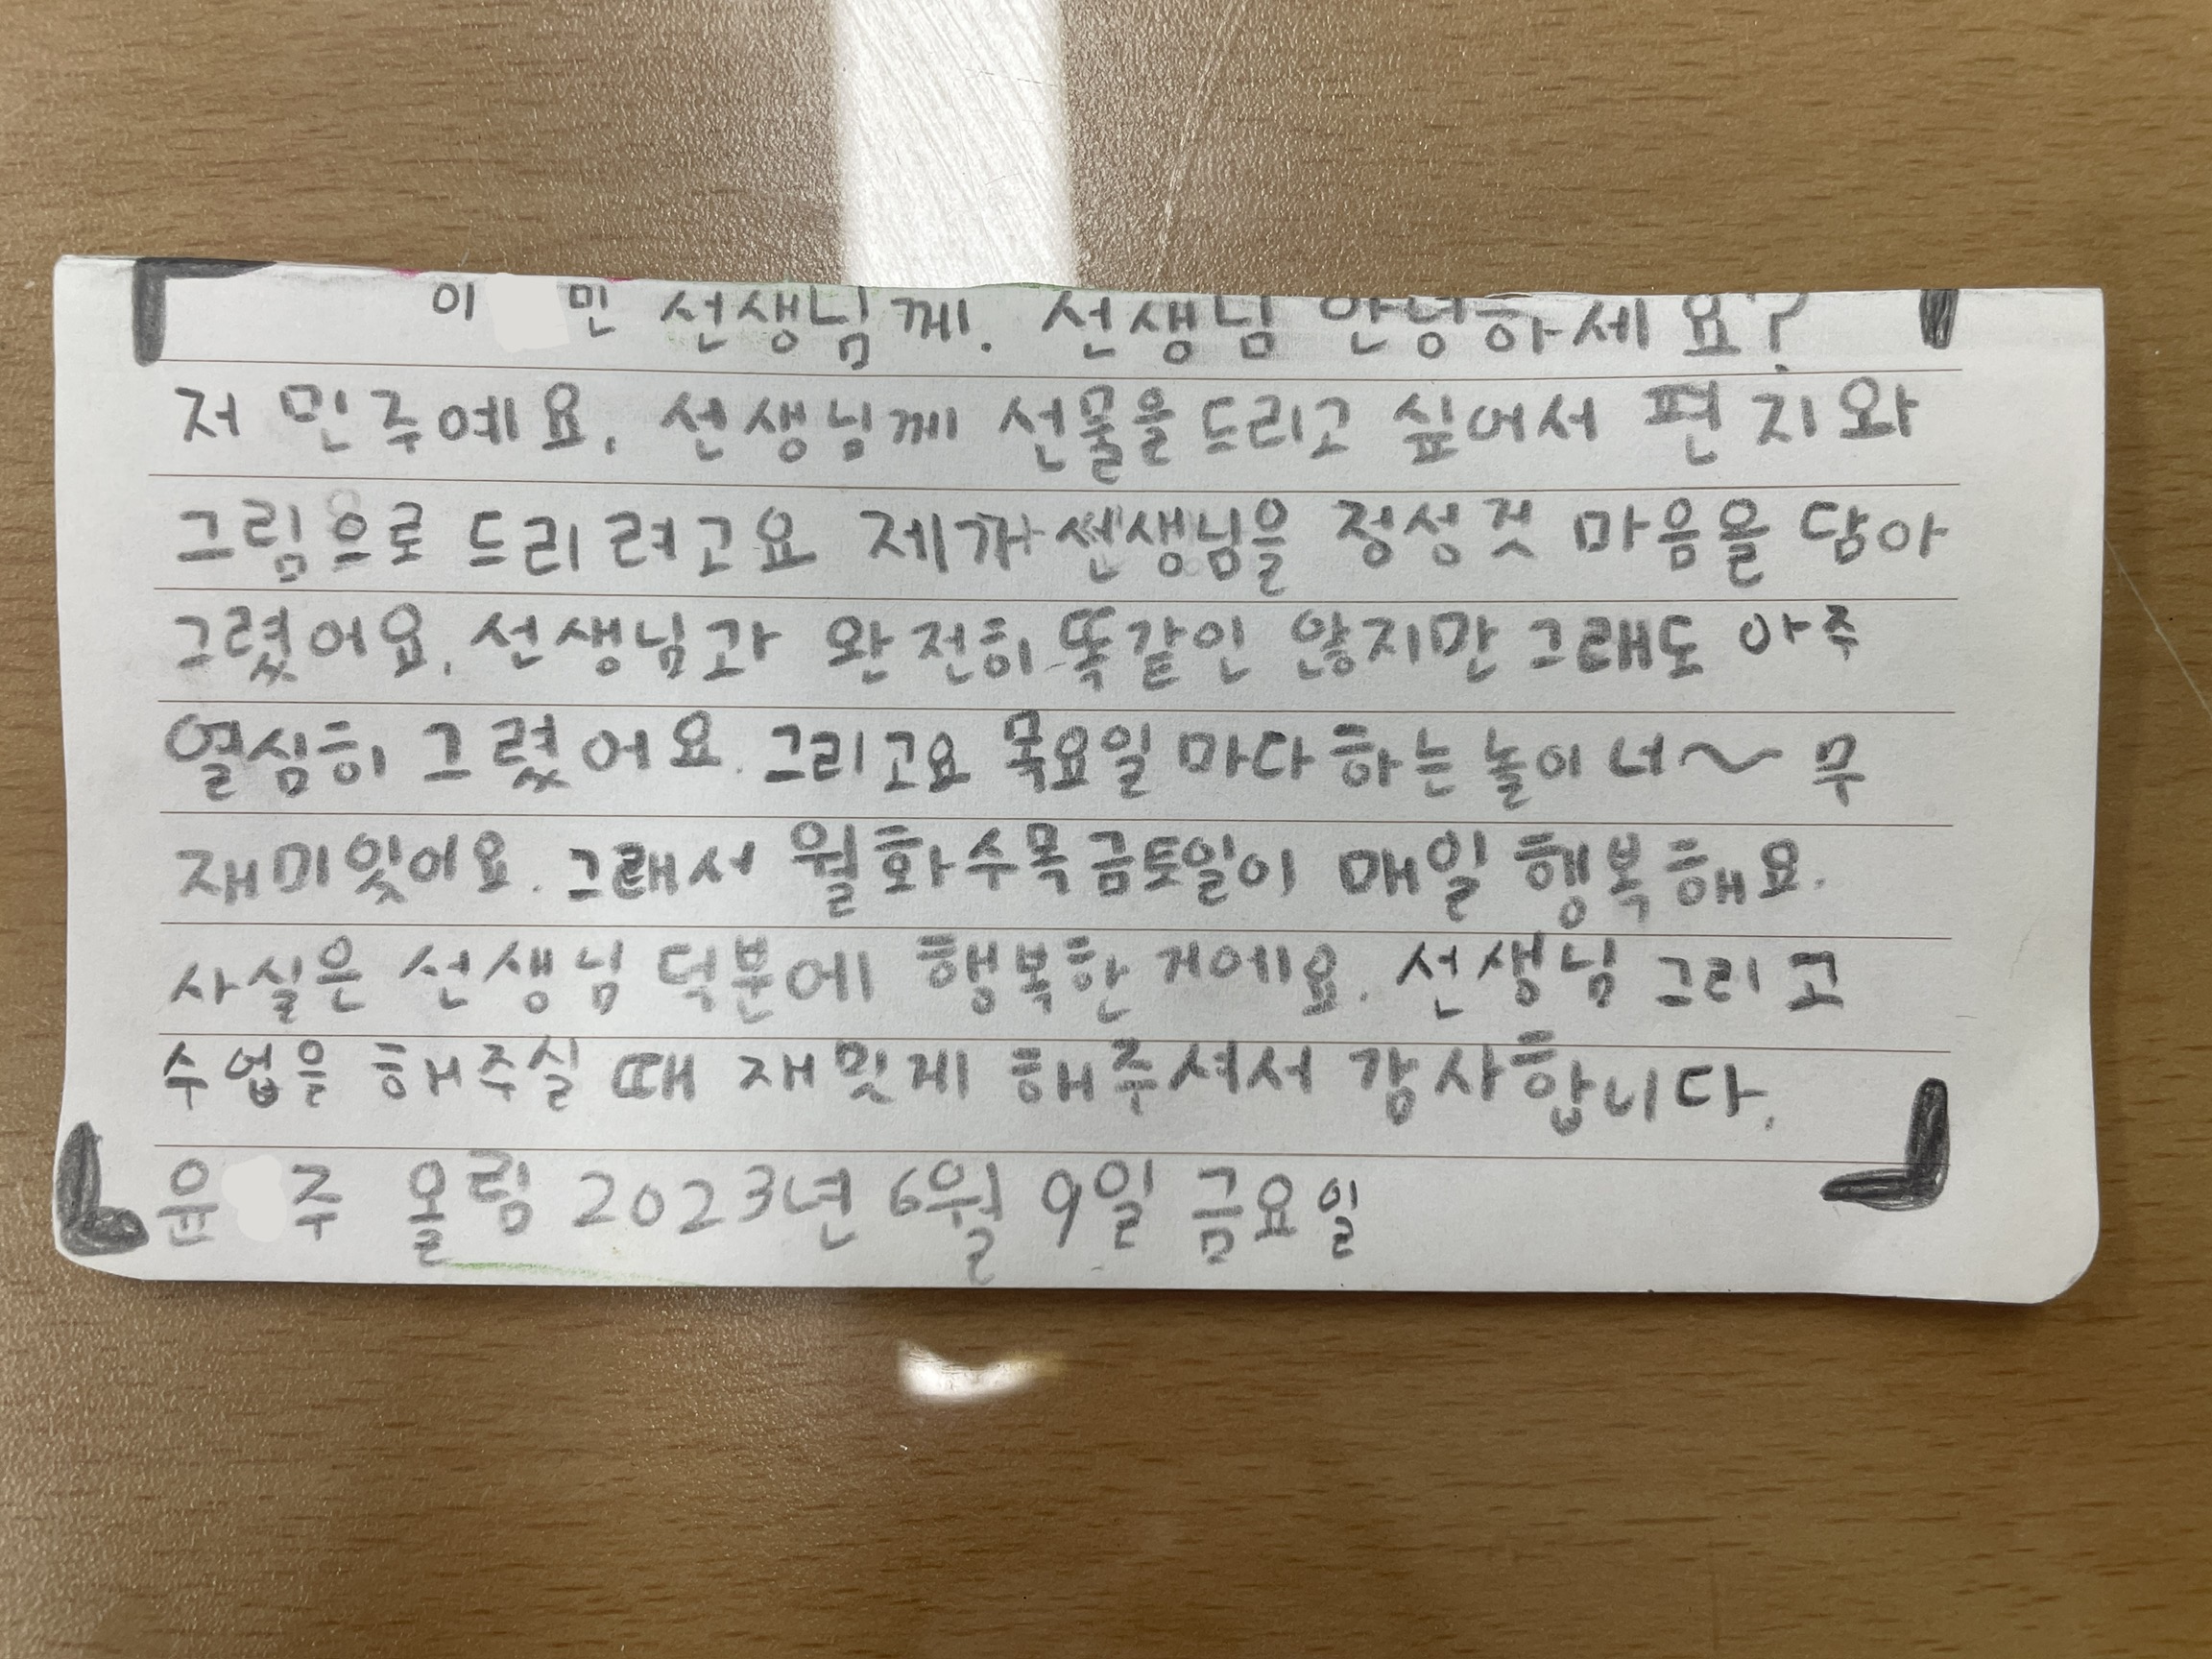 이 민 선생님께. 선생님 안녕하세요?
저 민주예요. 선생님께 선물을 드리고 싶어서 편지와
그림으로 드리려고요 제가 선생님을 정성껏 마음을 담아
그렸어요. 선생님과 완전히 똑같인 않지만 그래도 아주
열심히 그렸어요. 그리고요 목요일마다 하는 놀이 너~무
재미잇어요. 그래서 월화수목금토일이 매일 행복해요.
사실은 선생님 덕분에 행복한 거에요. 선생님 그리고
수업을 해주실 때 재밋게 해주셔서 감사합니다.
윤 주 올림 2023년 6월 9일 금요일